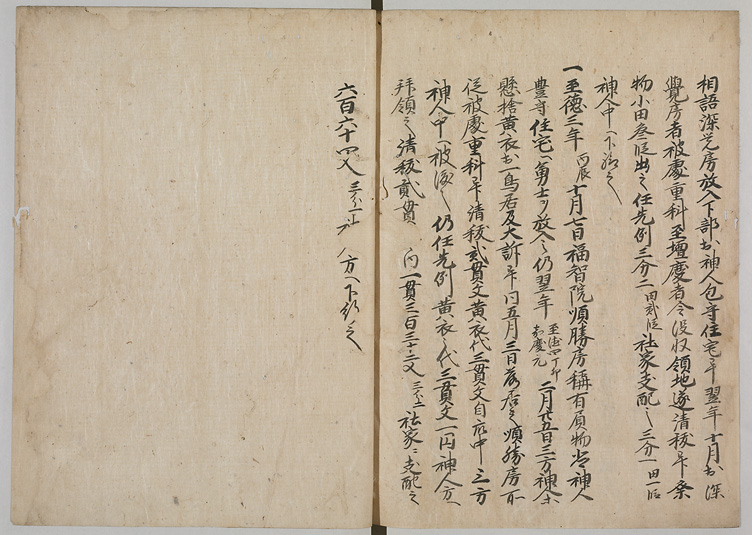 相語深覚房放入下部於神人包守住宅早翌年十月於深
覺房者被處重科至壇慶者令没収領地遂清秡早祭
物小田叁段出之任先例三分二田貳段社家支配之三分一田一段
神人中ヘ下給之
一至德三年丙辰十月七日福智院順勝房稱有屓物当神人
豊守住宅ヘ勇士ヲ放入之仍翌年至徳四丁卯嘉慶元二月廿五日三方神人等
懸捨黄衣於一鳥居及大訴早同五月三日落居之順勝房所
従被處重科早清秡貳貫文黄衣代三貫文自衆中三方
神人中ヘ被渡之仍任先例黄衣之代三貫文一円神人方ヘ
拝領之清秡貳貫内一貫三百三十三文三分二社家ニ支配之
六百六十四文三分一神人方ヘ下行之